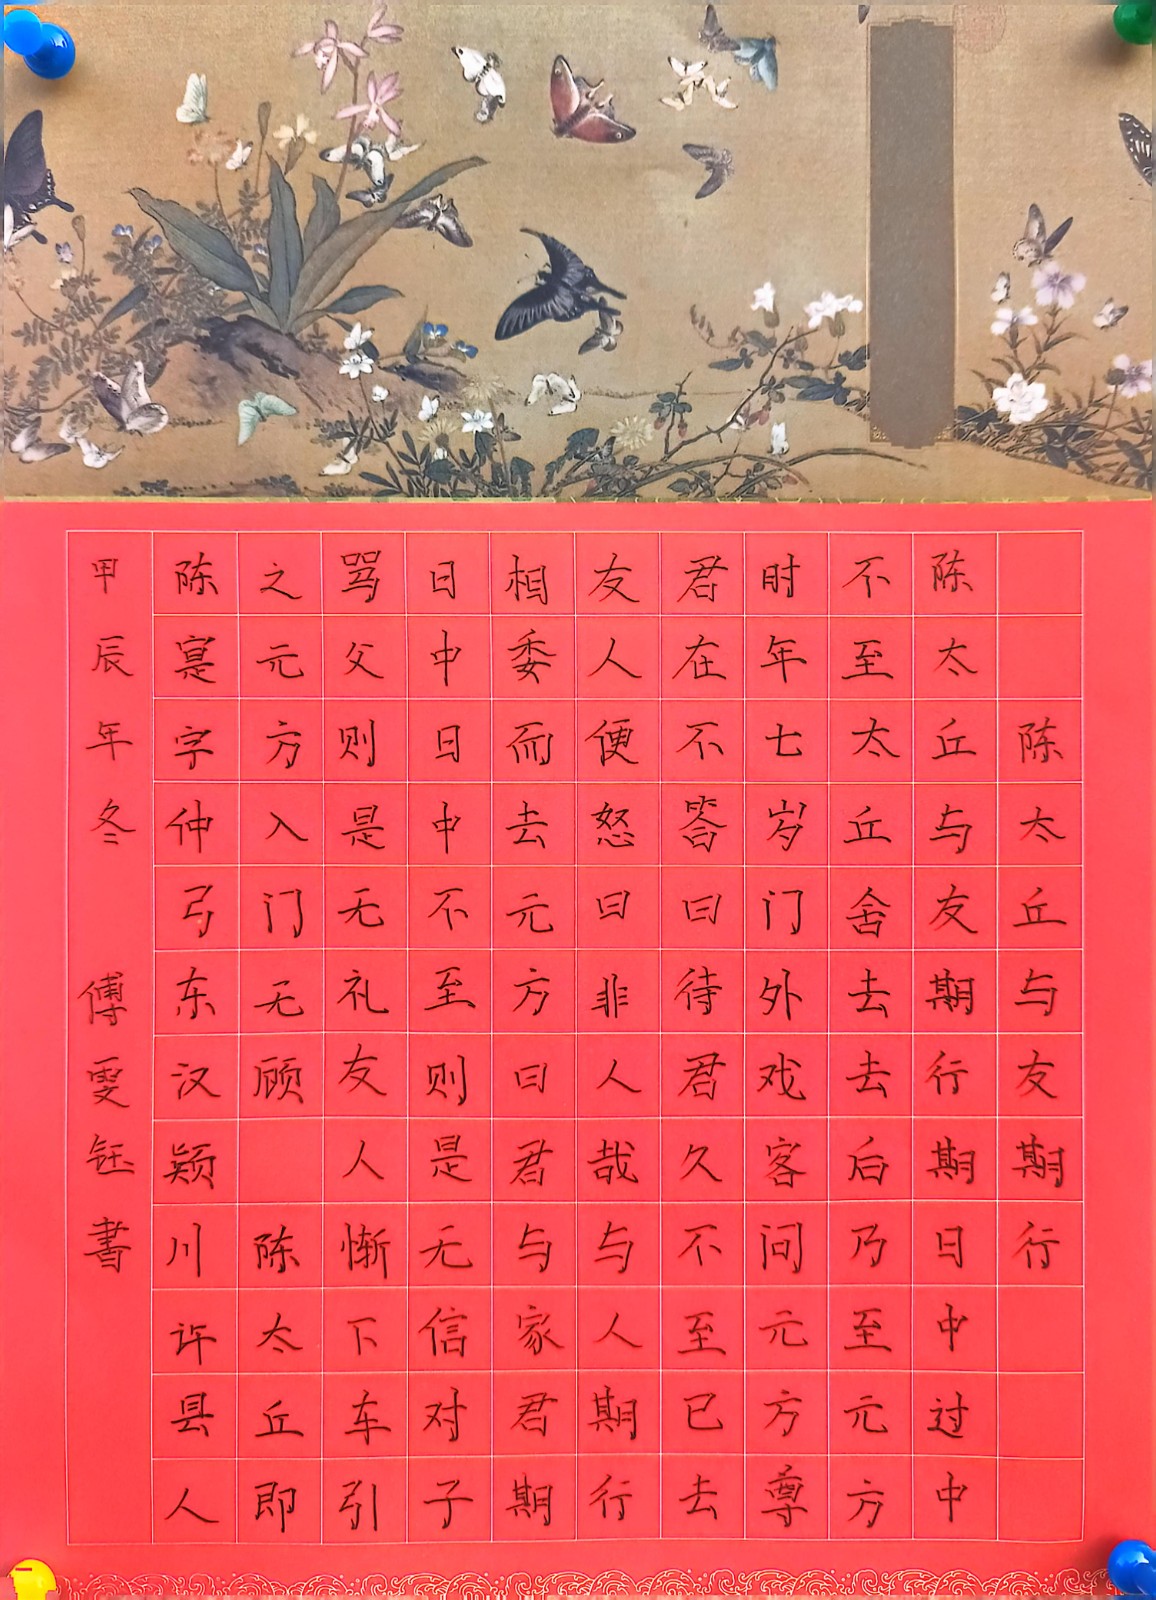 陈太丘与友期行
陈太丘与友期行期日中过中
不至太丘舍去去后乃至元方
时年七岁门外戏客问元方尊
君在不答曰待君久不至已去
友人便怒曰非人哉与人期行
相委而去元方曰君与家君期
日中日中不至则是无信对子
骂父则是无礼友人惭下车引
之元方入门无顾
陈太丘即
陈寔字仲弓东汉颍川许县人
甲辰年冬
傅雯钰書